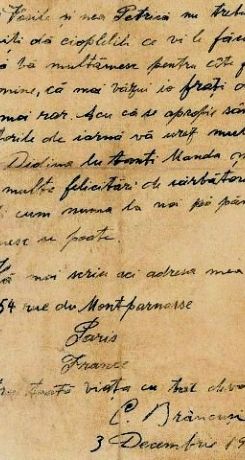 Vasile si nea Petrică nu treb
iti dă cioplelile ce vi le făcu
ă vă multămesc pentru câte
mine, că mai văzui io frați
mai rar. Acu că se apropie săr
torile de iarnă vă urez mult
Didina lu tanti Manda
multe felicitări de sărbător
i cum numa la noi pă
se poate.
ă mai scriu aci adresa mea
54 rue du Montparnasse
Paris
France
toată viața cu tot devo
C. Brâncuși
3 Decembrie 19